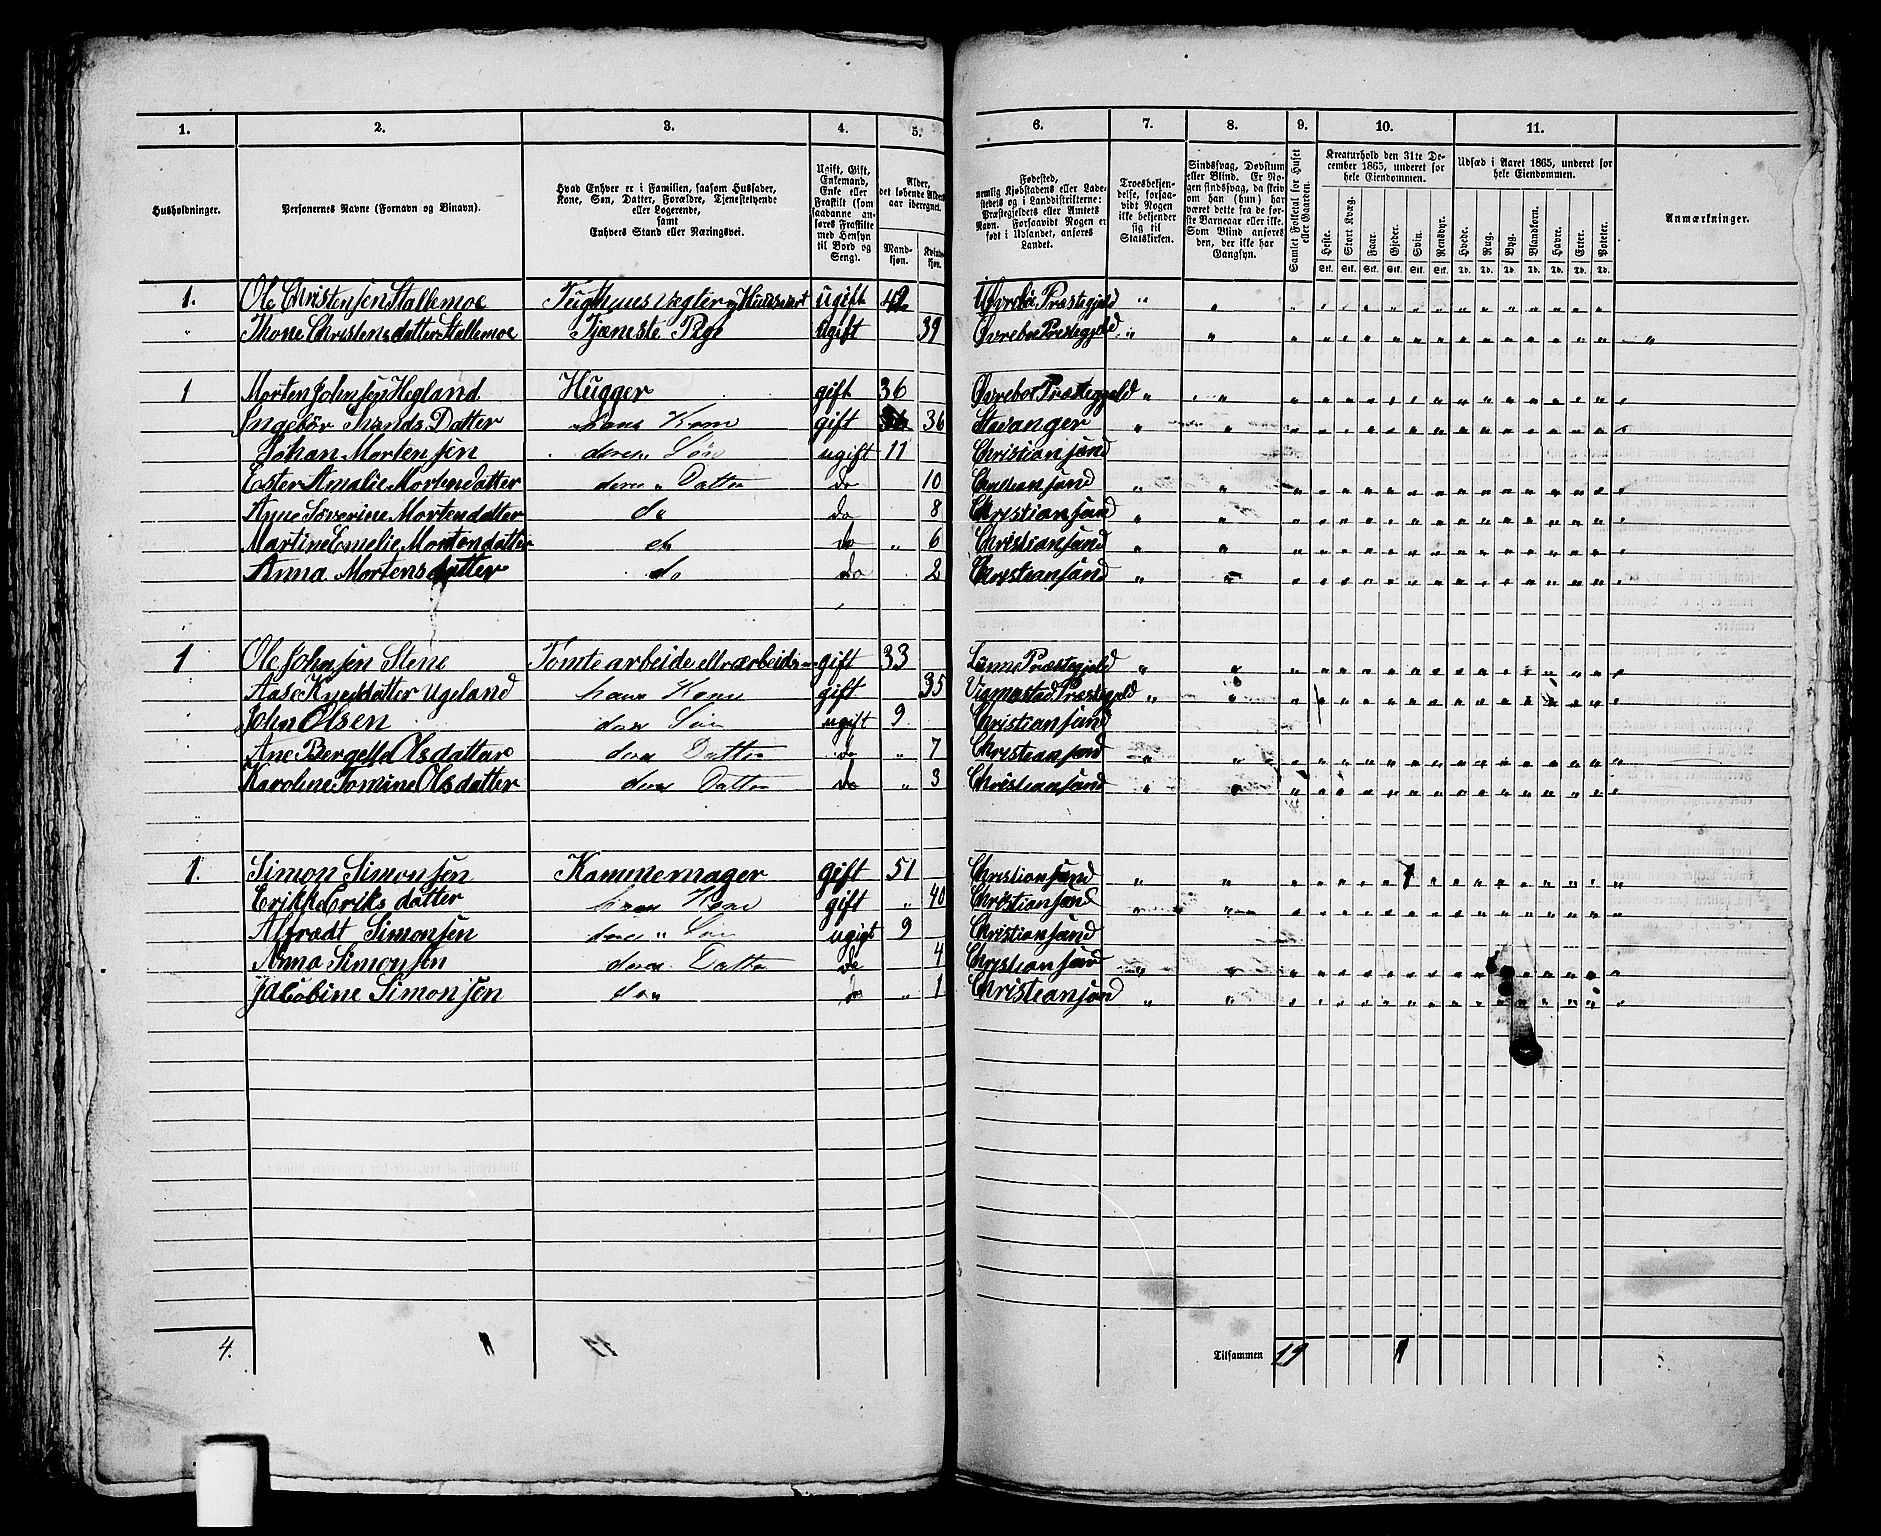 1. 2. 3. 4. 5. 6. 7. 8. 9. 10. 11.
Husholdninger.
Personernes Navne (Fornavn og Tilnavn).
Hvad Enhver er i Familien, saasom Husfader,
Kone, Søn, Datter, Forældre, Tjenestetyende
eller Logerende,
samt
Enhvers Stand eller Næringsvei.
Ugift, Gift,
Enkemand,
Enke eller
Fraskilt (som
saadanne an-
føres Fraskilte
med Hensyn
til Bord og
Seng).
Alder,
det løbende Alders-
aar iberegnet.
Mand-
kjøn.
Kvinde-
kjøn.
Fødested,
nemlig Kjøbstadens eller Lade-
stedets og i Landdistrikterne:
Præstegjeldets eller Amtets
Navn. Forsaavidt Nogen er
født i Udlandet, anføres
Landet.
Troesbekjen-
delse, forsaa-
vidt Nogen
ikke bekjender
sig til
Statskirken.
Sindssvag, Døvstum
eller Blind. Er No-
gen sindssvag, da skriv
om han (hun) har
været dette fra de før-
ste Barneaar eller ikke.
Som Blind anføres
den, der ikke har
Gangsyn.
Samlet Folketal for Huset
eller Gaarden.
Kreaturhold den 31te De-
cember 1865, underet for
hele Eiendommen.
Heste. Stort Kvæg. Faar. Gjeder. Svin. Rensdyr.
Stk. Stk. Stk. Stk. Stk. Stk.
Udsæd i Aaret 1865, underet for
hele Eiendommen.
Hvede. Rug. Byg. Blandkorn. Havre. Erter. Poteter.
Td. Td. Td. Td. Td. Td. Td.
Anmærkninger.
1. Ole Christensen Stallemoe ugift 42 Øvrebø Præstegjeld
" Thone Christensdatter Stallemoe Tjæneste Pige ugift 39 Øvreboe Præstegjeld
1 Morten Johnsen Hegland Hugger gift 36 Øvreboe Præstegjeld
Ingebør Datter hans Kone gift 36 Stavanger
Johan Mortensen deres Søn ugift 11 Christiansand
Ester Amalie Mortendatter deres " Datter do 10
Anne Severine Mortendatter do do 8 Christiansand
Martine Emelie Mortendatter do do " 6 Christiansand
Anna Mortensdatter do do 2 Christiansand
1 Ole Johnsen Stene gift 33 Præstegjeld
Aase Ugeland hans Kone gift 35 Præstegjeld
John Olsen deres Søn ugift 9 Christiansand
Ane Olsdatter deres Datter do " 7 Christiansand
Karoline Tomine Olsdatter deres Datter do " 3 Christiansand
1. Simon Simonsen Kammemager gift 51 Christiansand 1
Eriksdatter hans Kone gift " 40 Christiansand
Alfrædt Simonsen deres " Søn ugigt 9 Christiansand
Anna Simonsen deres Datter do 4 Christiansand
Jacobine Simonsen do " 1 Christiansand
4. Tilsammen 19 1